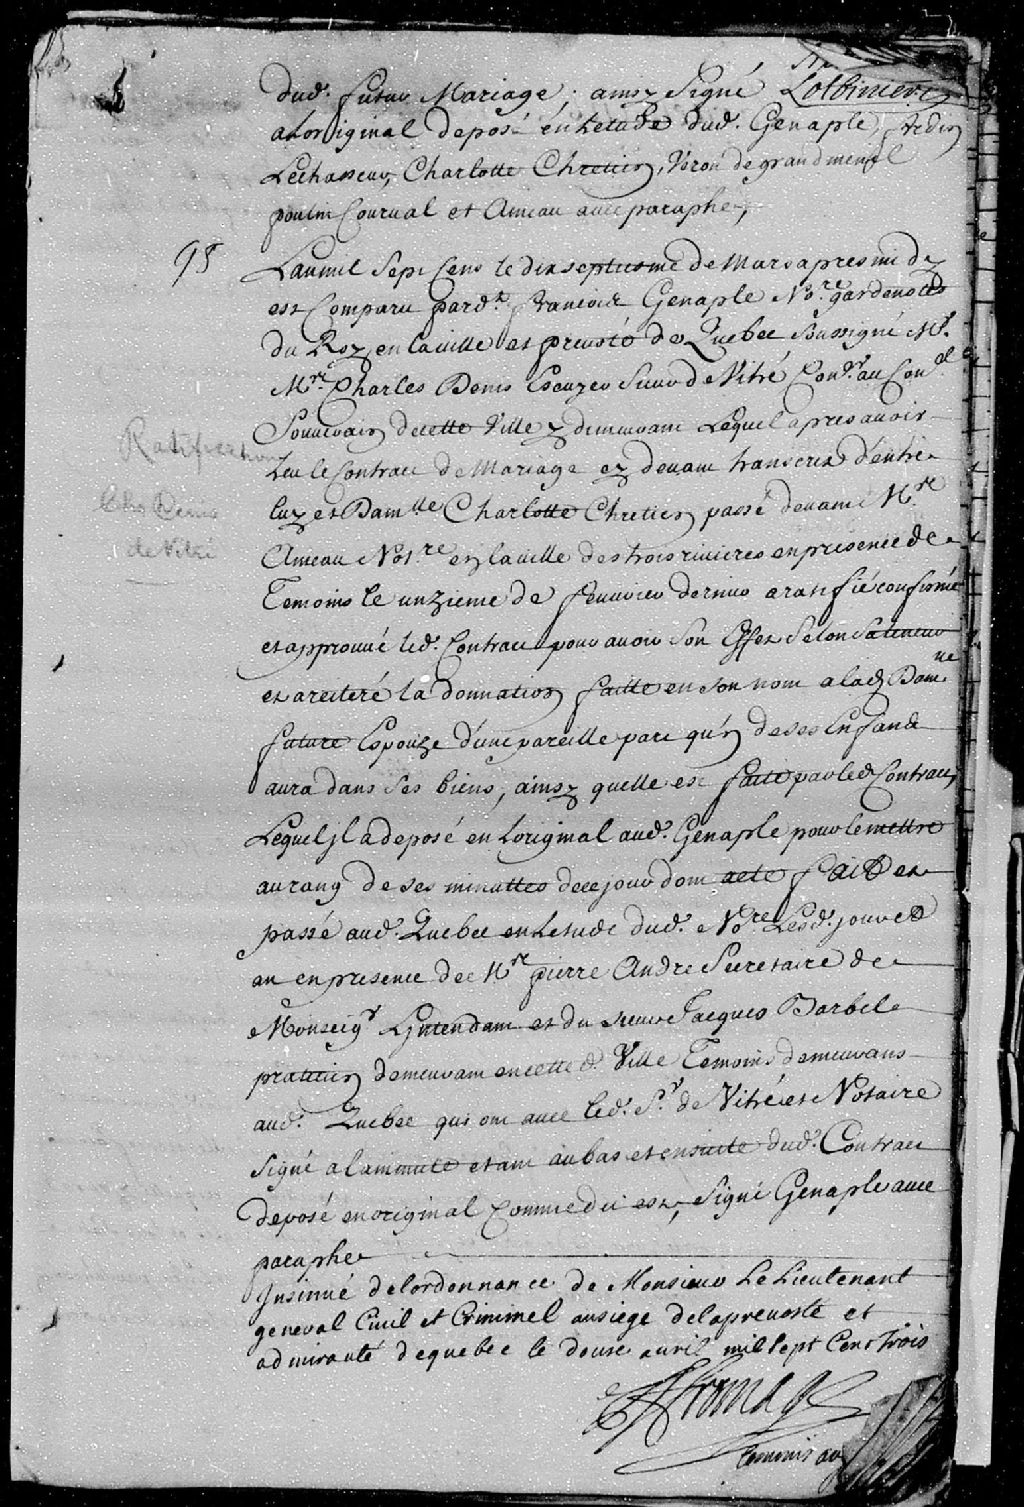 dud. futur Mariage; ainsy Signé Lotbiniere
a Loriginal deposé en Letude dud. Genaple,
Lechasseur, Charlotte Chretien, Veron de grandmenil
poulin Courval et Ameau avec paraphe,
95
Lanmil Sept Cens le dixseptiesme de Mars apresmidy
est Comparu pard.t francois Genaple No.re gardenottes
du Roy en la ville et prevosté de Quebec Soussigné M.r
M.re Charles Denis Escuyer Sieur de Vitré Con.er au Con.el
Souverain de cette Ville y demeurant Lequel apres avoir
Leu le Contract de Mariage cy devant transcrit d'entre
luy et Dam.lle Charlotte Chretien passé devant M.re
Ameau Not.re en la ville des trois rivieres en presence de
Temoins le unzieme de fevrier dernier a ratifié confirmé
et approuvé led. Contract pour avoir Son Effet Selon Sa teneur
et a reiteré la donnation faitte en son nom a lad. Dam.ne
future Espouze d'une pareille part qu'un de ses Enfans
aura dans ses biens, ainsy quelle est faite par led. Contract,
Lequel jl a deposé en Loriginal aud. Genaple pour le mettre
au rang de ses minuttes de ce jour dont acte fait et
passé aud. Quebec en Letude dud. No.re Lesd. jour et
an en presence de M.re pierre André Secretaire de
Monseig.r LJntendant et du sieur Jacques Barbel
praticien demeurant en cette d. Ville Temoins demeurans
aud. Quebec qui ont avec led. S.r de Vitré et Notaire
signé a la minute etant au bas et ensuite dud. Contract
deposé en original Comme dit est, Signé Genaple avec
paraphe
Jnsinué de lordonnance de Monsieur Le Lieutenant
general Civil et Criminel au siege de la prevosté et
admirauté de quebec le douze avril mil sept Cens trois
Commis au
Ratification
Chs Denis
de Vitré